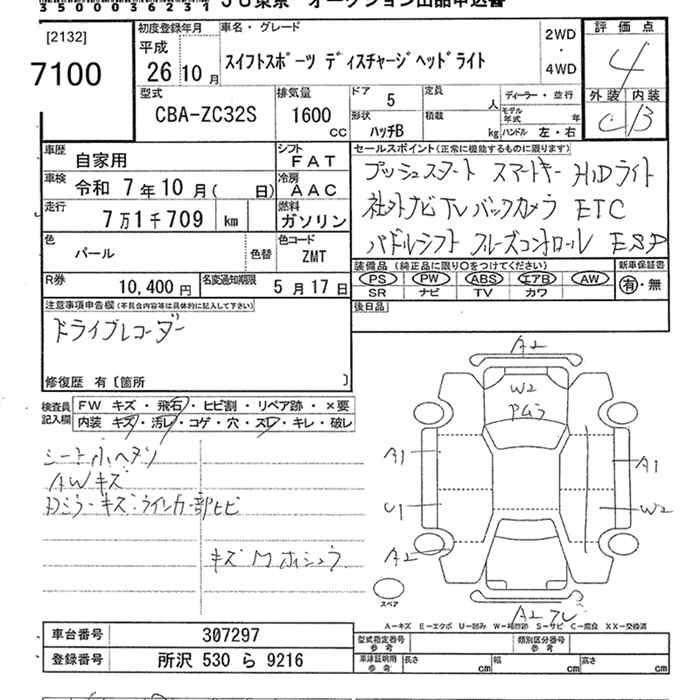 3500036231
JU東京 オークション出品申込書
[2132]
7100
初度登録年月
平成
26年10月
車名・グレード
スイフトスポーツ ディスチャージヘッドライト
2WD
・
4WD
評価点
4
外装 内装
C B
型式
CBA-ZC32S
排気量
1600
CC
ドア 5
形状 ハッチB
定員 人
積載 kg
ディーラー・並行
モデル年式 年
ハンドル 左・右
車歴
自家用
シフト
FAT
車検
令和 7年10月( 日)
冷房
AAC
走行
7万1千709 km
燃料
ガソリン
色
パール
色替
色コード
ZMT
R券
10,400円
名変通知期限
5月17日
セールスポイント(正常に機能するものに限ります)
プッシュスタート スマートキー HIDライト
社外ナビTVバックカメラ ETC
パドルシフト クルーズコントロール ESP
装備品(純正品に限り○をつけてください)
PS PW ABS エアB AW
SR ナビ TV カワ
新車保証書
有・無
後日品
注意事項申告欄(不具合内容等は具体的に記入して下さい)
ドライブレコーダー
修復歴 有〔箇所 〕
検査員
記入欄
FW キズ・飛石・ヒビ割・リペア跡・×要
内装 キズ・汚レ・コゲ・穴・スレ・キレ・破レ
シート小ヘタリ
AWキズ
Dミラーキズ・ウインカー部ヒビ
キズ
A2
W2
A1
A1
U1
W2
A2
A2
スペア
A-キズ E-エクボ U-凹み W-補修跡 S-サビ C-腐食 XX-交換済
車台番号 307297
登録番号 所沢 530 ら 9216
型式指定番号
参考
類別区分番号
参考
車庫証明用
参考
長さ cm
幅 cm
高さ cm